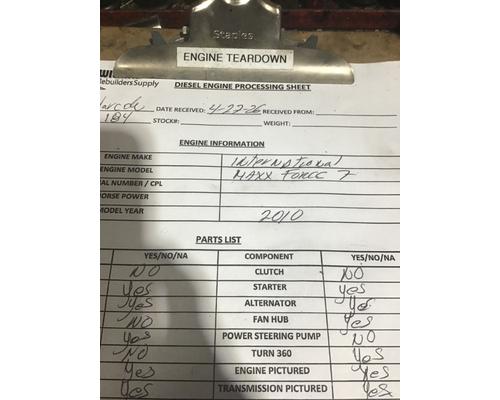 Staples
ENGINE TEARDOWN
lebuildersSupply DIESEL ENGINE PROCESSING SHEET
DATE RECEIVED: 4-22-26 RECEIVED FROM:
184 STOCK#: WEIGHT:
ENGINE INFORMATION
ENGINE MAKE International
ENGINE MODEL MAXX FORCE 7
AL NUMBER / CPL
ORSE POWER
MODEL YEAR 2010
PARTS LIST
YES/NO/NA COMPONENT YES/NO/NA
NO CLUTCH NO
Yes STARTER Yes
Yes ALTERNATOR Yes
NO FAN HUB Yes
Yes POWER STEERING PUMP NO
NO TURN 360 Yes
Yes ENGINE PICTURED Yes
Yes TRANSMISSION PICTURED Yes